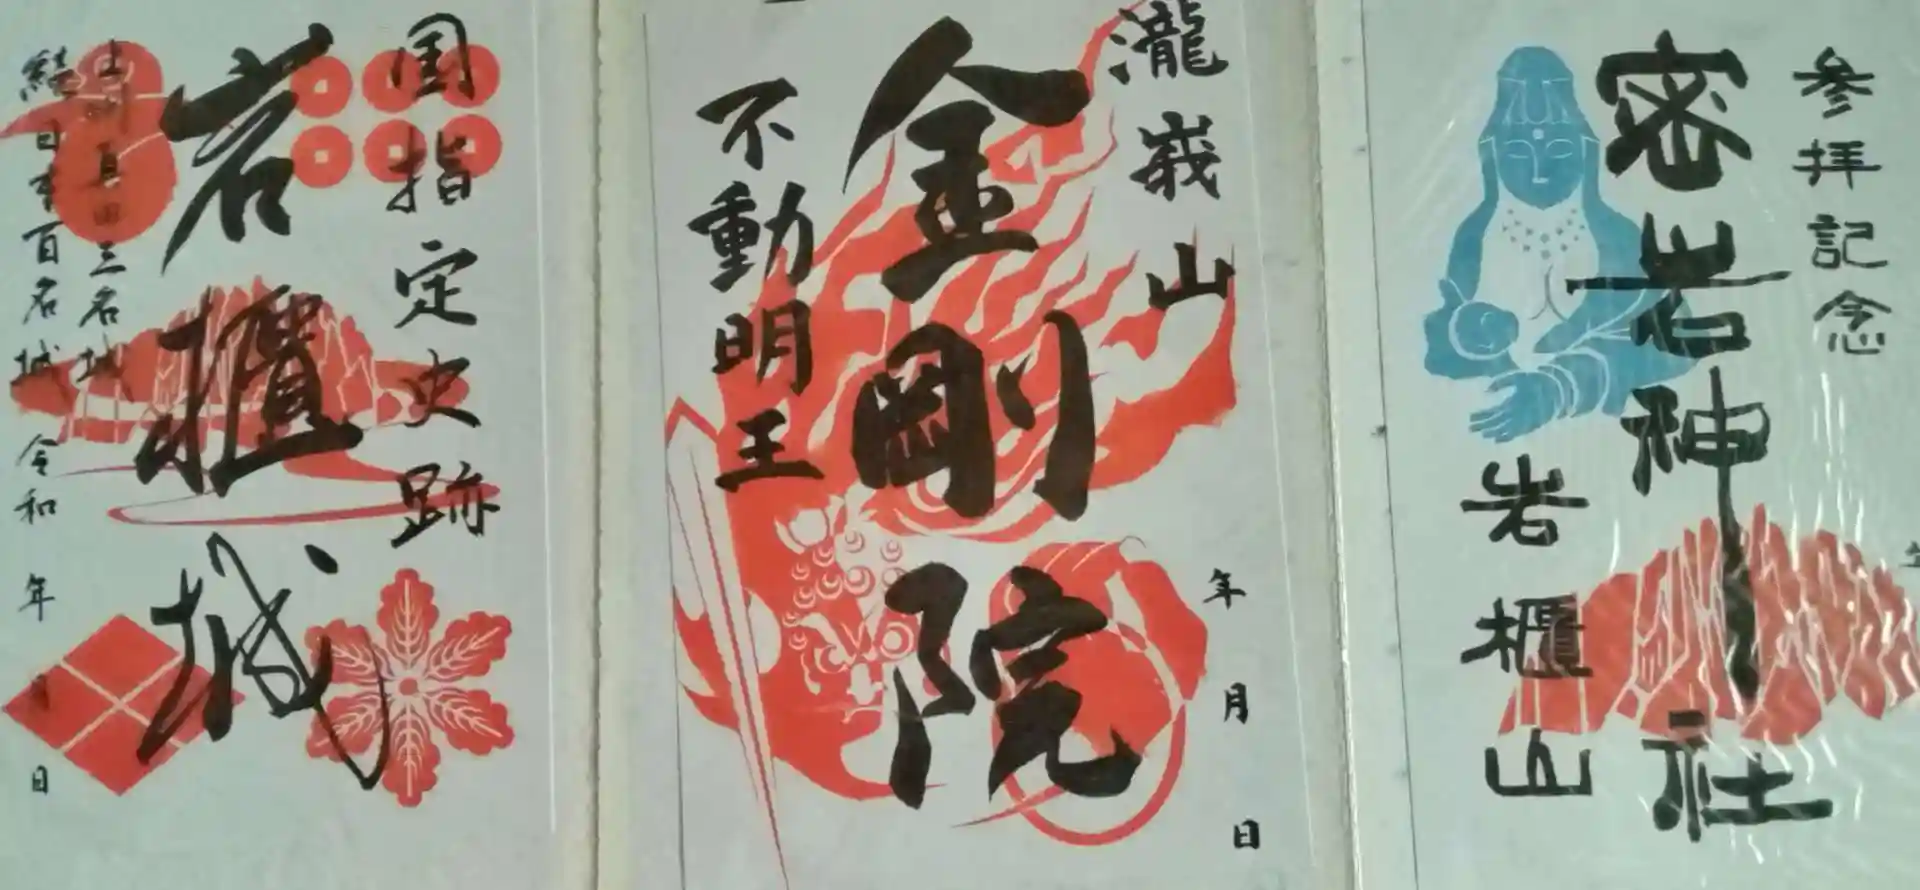 国指定史跡
岩櫃城
上州真田三名城
続日本百名城 令和 年 月 日
瀧峨山
金剛院
不動明王
年 月 日
参拝記念
密岩神社
岩櫃山